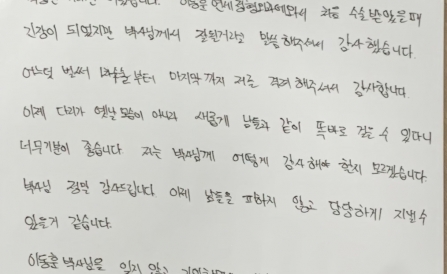 이동훈 연세정형외과에와서 처음 수술 받았을때
긴장이 되었지만 박사님께서 잘될거라고 말씀해주셔서 감사했습니다.
어느덧 벌써 마지막 까지 저를 격려 해주셔서 감사합니다.
이제 다리가 옛날 모습이 아니라 새롭게 남들과 같이 똑바로 걸을 수 있다니
너무기분이 좋습니다. 저는 박사님께 어떻게 감사해야 할지 모르겠습니다.
박사님 정말 감사드립니다. 이제 남들을 피하지 않고 당당하게 지낼수
있을거 같습니다.
이동훈 박사님을 잊지 않고